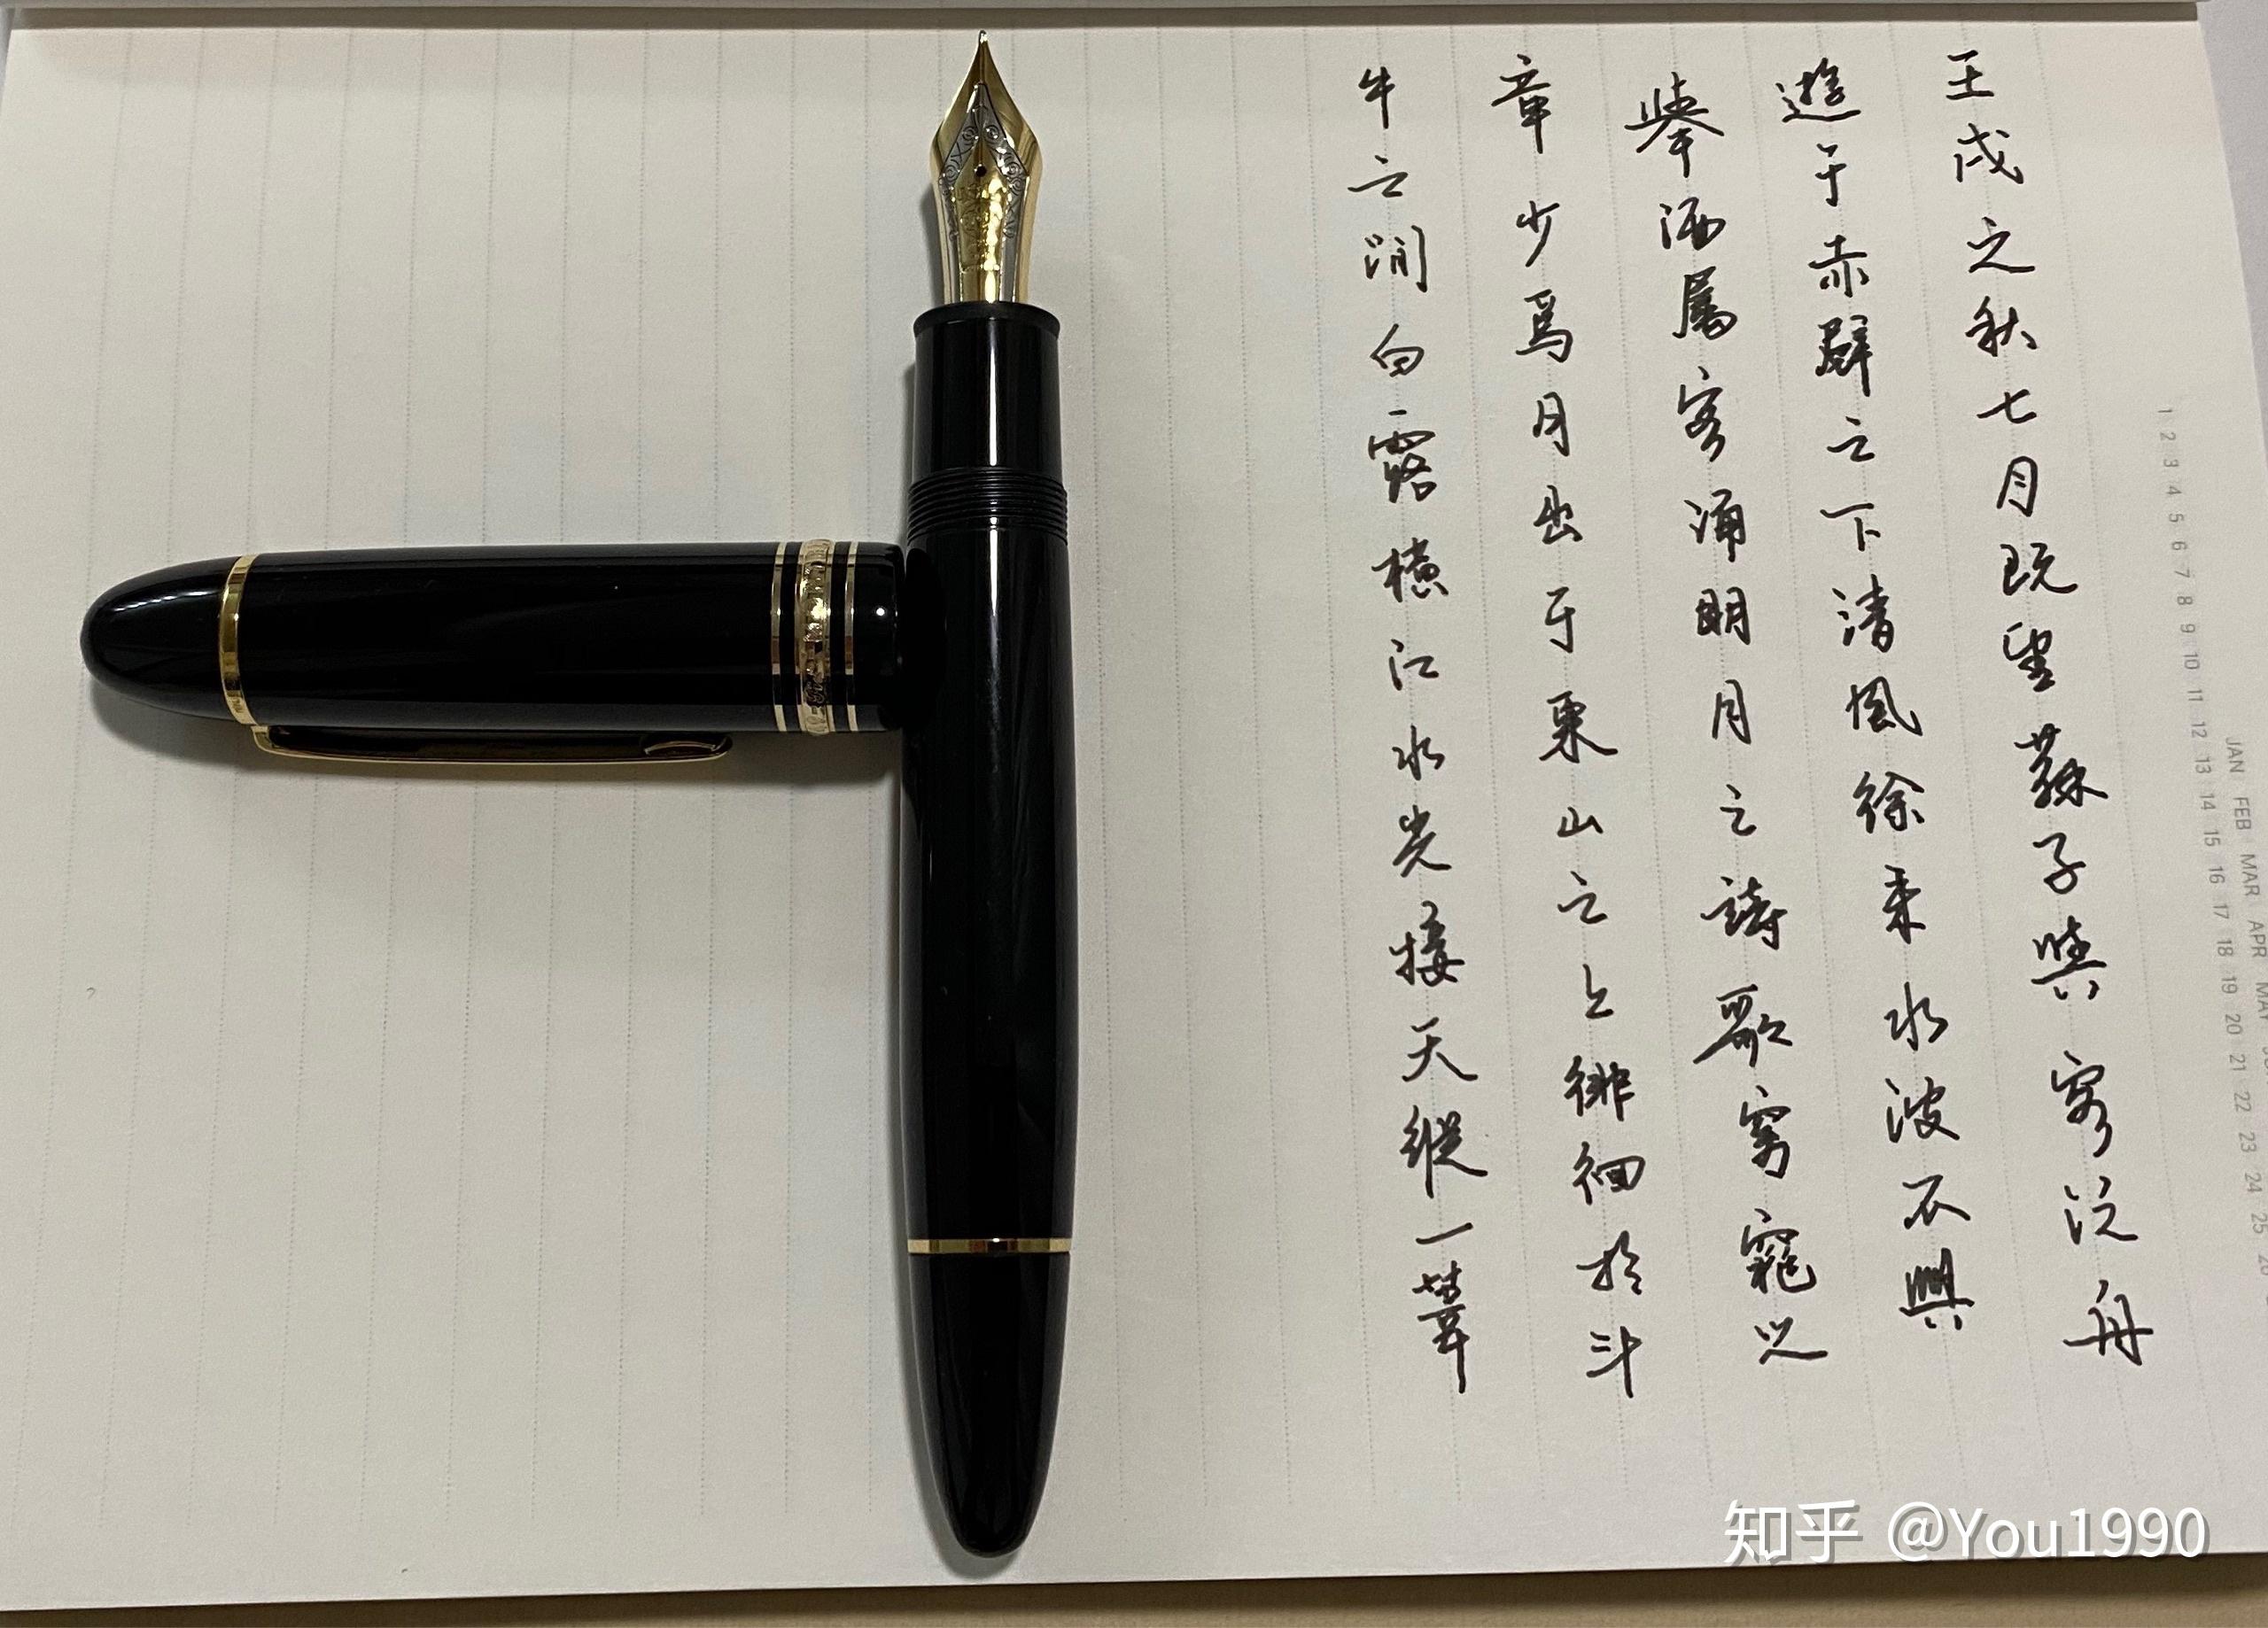 壬戌之秋七月既望蘇子與客泛舟
遊于赤壁之下清風徐来水波不興
舉酒屬客誦明月之詩歌窈窕之
章少焉月出于東山之上徘徊於斗
牛之間白露橫江水光接天縱一葦
1 2 3 4 5 6 7 8 9 10 11 12 13 14 15 16 17 18 19 20 21 22 23 24 25
JAN FEB MAR APR MAY
知乎 @You1990